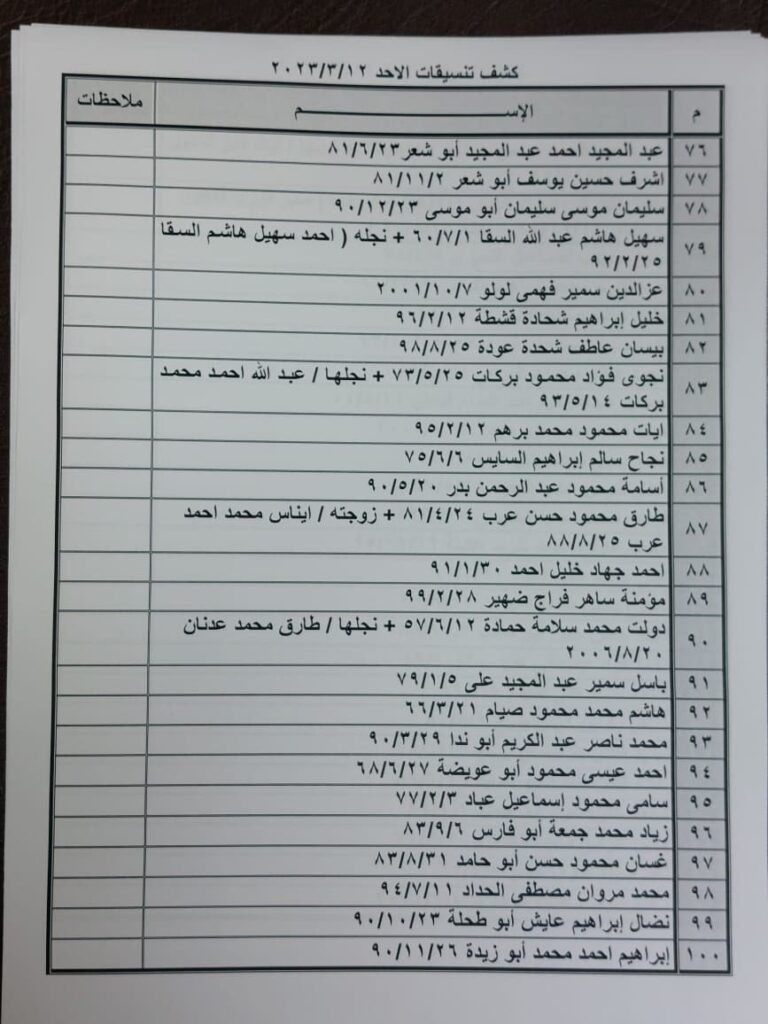 كشف تنسيقات الاحد ٢٠٢٣/٣/١٢
م الإســـــم ملاحظات
٧٦ عبد المجيد احمد عبد المجيد أبو شعر ٨١/٦/٢٣
٧٧ اشرف حسين يوسف أبو شعر ٨١/١١/٢
٧٨ سليمان موسى سليمان أبو موسى ٩٠/١٢/٢٣
٧٩ سهيل هاشم عبد الله السقا ٦٠/٧/١ + نجله ( احمد سهيل هاشم السقا
٩٢/٢/٢٥
٨٠ عزالدين سمير فهمى لولو ٢٠٠١/١٠/٧
٨١ خليل إبراهيم شحادة قشطة ٩٦/٢/١٢
٨٢ بيسان عاطف شحدة عودة ٩٨/٨/٢٥
٨٣ نجوى فؤاد محمود بركات ٧٣/٥/٢٥ + نجلها / عبد الله احمد محمد
بركات ٩٣/٥/١٤
٨٤ ايات محمود محمد برهم ٩٥/٢/١٢
٨٥ نجاح سالم إبراهيم السايس ٧٥/٦/٦
٨٦ أسامة محمود عبد الرحمن بدر ٩٠/٥/٢٠
٨٧ طارق محمود حسن عرب ٨١/٤/٢٤ + زوجته / ايناس محمد احمد
عرب ٨٨/٨/٢٥
٨٨ احمد جهاد خليل احمد ٩١/١/٣٠
٨٩ مؤمنة ساهر فراج ضهير ٩٩/٢/٢٨
٩٠ دولت محمد سلامة حمادة ٥٧/٦/١٢ + نجلها / طارق محمد عدنان
٢٠٠٦/٨/٢٠
٩١ باسل سمير عبد المجيد على ٧٩/١/٥
٩٢ هاشم محمد محمود صيام ٦٦/٣/٢١
٩٣ محمد ناصر عبد الكريم أبو ندا ٩٠/٣/٢٩
٩٤ احمد عيسى محمود أبو عويضة ٦٨/٦/٢٧
٩٥ سامى محمود إسماعيل عباد ٧٧/٢/٣
٩٦ زياد محمد جمعة أبو فارس ٨٣/٩/٦
٩٧ غسان محمود حسن أبو حامد ٨٣/٨/٣١
٩٨ محمد مروان مصطفى الحداد ٩٤/٧/١١
٩٩ نضال إبراهيم عايش أبو طحلة ٩٠/١٠/٢٣
١٠٠ إبراهيم احمد محمد أبو زيدة ٩٠/١١/٢٦